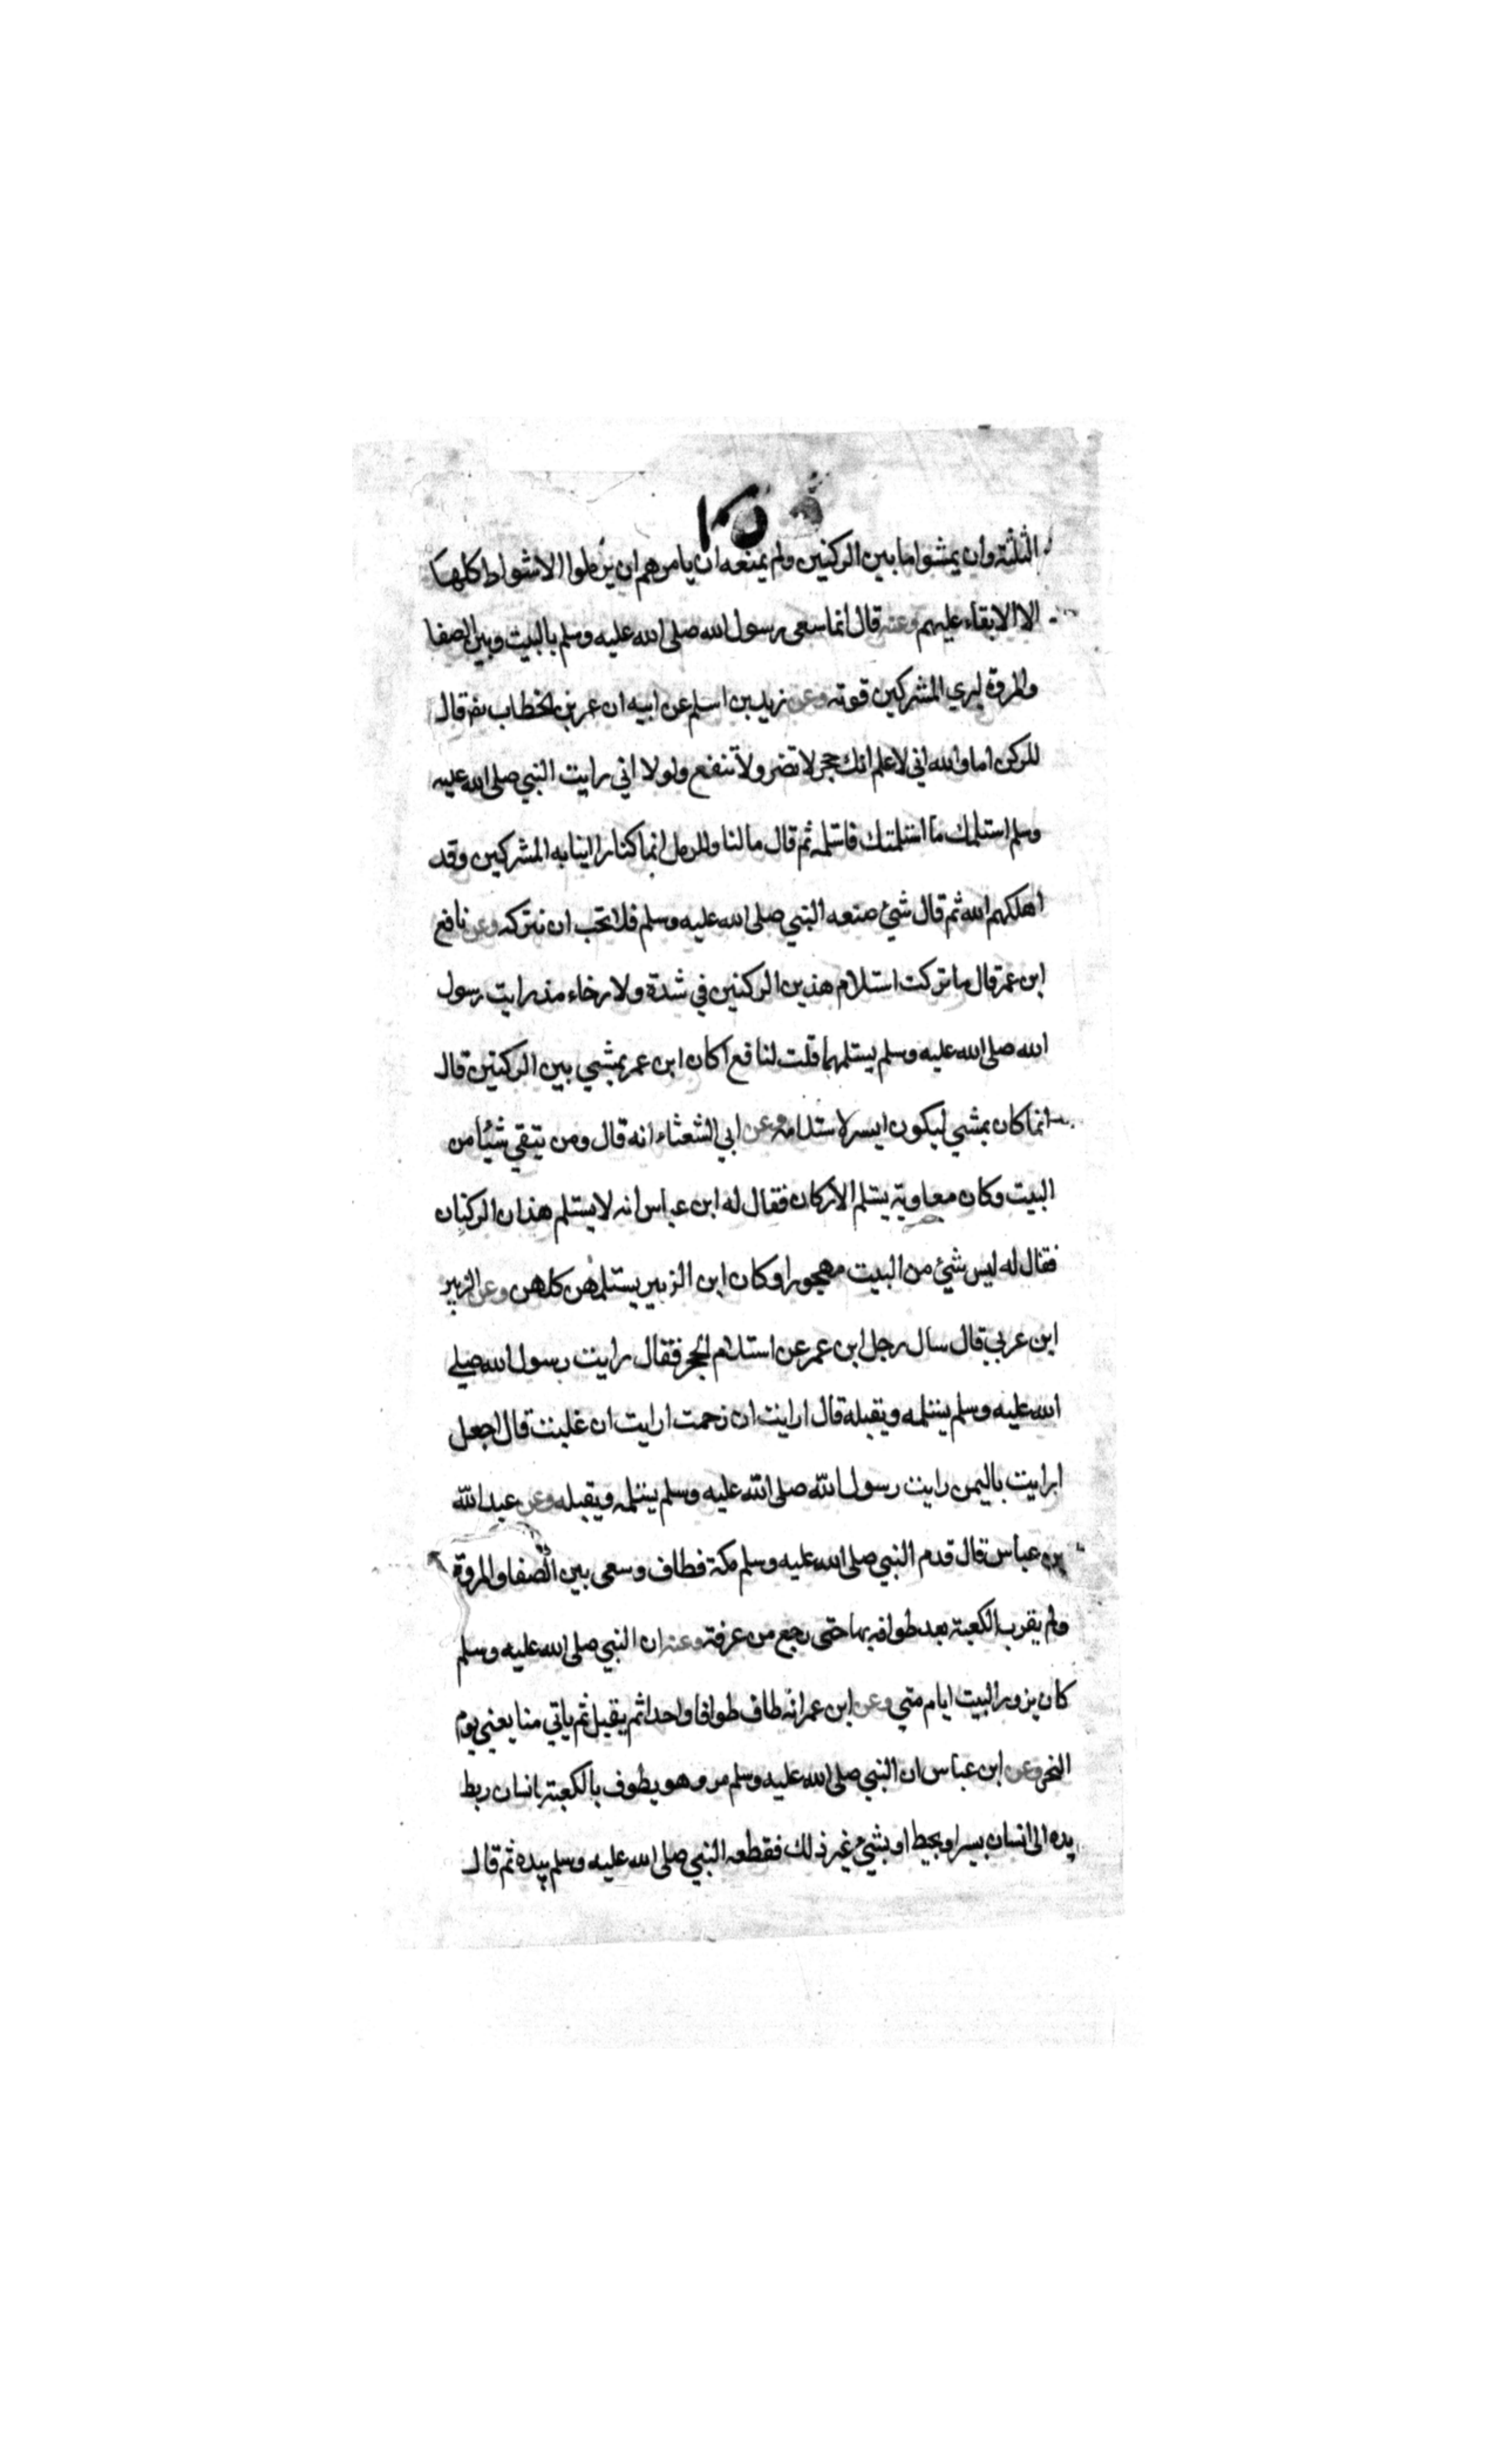 ١٠٥
الثلثة وان يمشوا ما بين الركنين ولم يمنعه ان يامرهم ان يرملوا الاشواط كلها
الا الابقاء عليهم وعنه قال انما سعى رسول الله صلى الله عليه وسلم بالبيت وبين الصفا
والمروة ليري المشركين قوته وعن زيد بن اسلم عن ابيه ان عمر بن الخطاب رضه قال
للركن اما والله اني لاعلم انك حجر لا تضر ولا تنفع ولولا اني رايت النبي صلى الله عليه
وسلم استلمك ما استلمتك فاستلمه ثم قال ما لنا والرمل انما كنا راينا به المشركين وقد
اهلكهم الله ثم قال شيئ صنعه النبي صلى الله عليه وسلم فلا نحب ان نتركه وعن نافع
ابن عمر قال ما تركت استلام هذين الركنين في شدة ولا رخاء مذ رايت رسول
الله صلى الله عليه وسلم يستلمهما قلت لنافع اكان ابن عمر يمشي بين الركنين قال
انما كان يمشي ليكون ايسر لاستلامه وعن ابي الشعثاء انه قال ومن يتقي شيئا من
البيت وكان معاوية يستلم الاركان فقال له ابن عباس انه لا يستلم هذان الركنان
فقال له ليس شيئ من البيت مهجورا وكان ابن الزبير يستلمهن كلهن وعن الزبير
ابن عربي قال سال رجل ابن عمر عن استلام الحجر فقال رايت رسول الله صلى
الله عليه وسلم يستلمه ويقبله قال ارايت ان زحمت ارايت ان غلبت قال اجعل
ارايت باليمن رايت رسول الله صلى الله عليه وسلم يستلمه ويقبله وعن عبد الله
بن عباس قال قدم النبي صلى الله عليه وسلم مكة فطاف وسعى بين الصفا والمروة
ولم يقرب الكعبة بعد طوافه بها حتى رجع من عرفة وعنه ان النبي صلى الله عليه وسلم
كان يزور البيت ايام منى وعن ابن عمر انه طاف طوافا واحدا ثم يقيل ثم ياتي منا يعني يوم
النحر وعن ابن عباس ان النبي صلى الله عليه وسلم مر وهو يطوف بالكعبة بانسان ربط
يده الى انسان بسير او بخيط او بشيئ غير ذلك فقطعه النبي صلى الله عليه وسلم بيده ثم قال